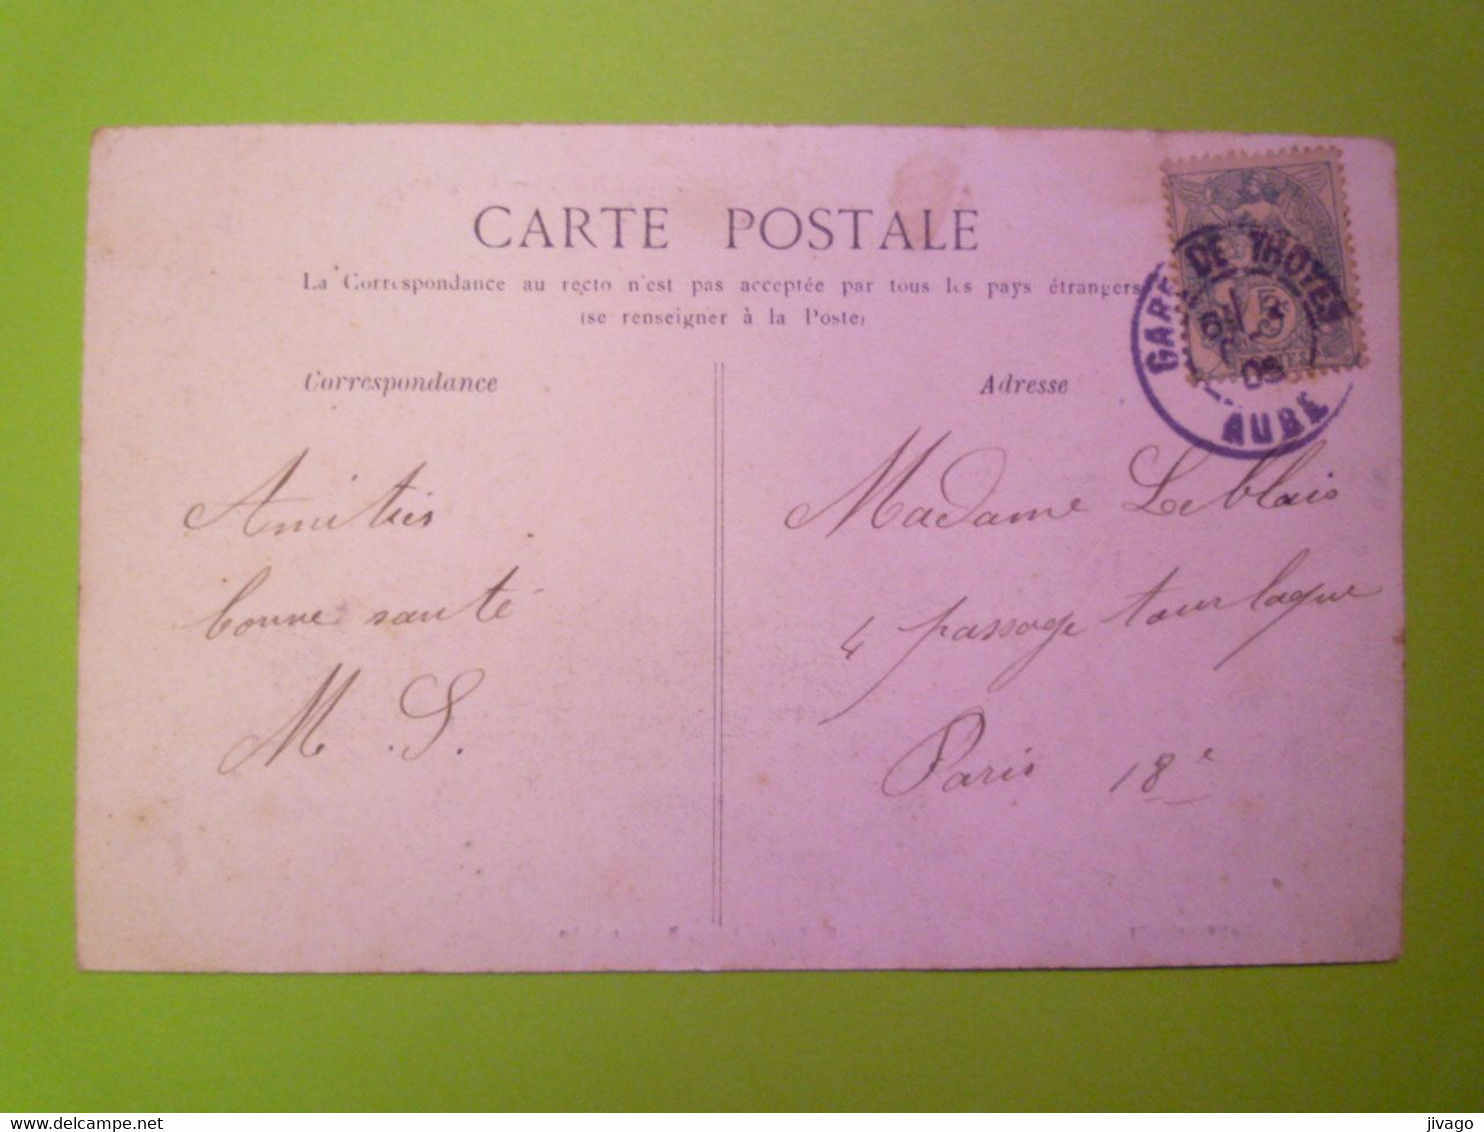 CARTE POSTALE
La Correspondance au recto n'est pas acceptée par tous les pays étrangers
(se renseigner à la Poste)
Correspondance
Adresse
GARE DE TROYES
5
09
AUBE
Amitiés
bonne santé
M. S.
Madame Leblais
4 passage tourlaque
Paris 18e
www.delcampe.net
jivago